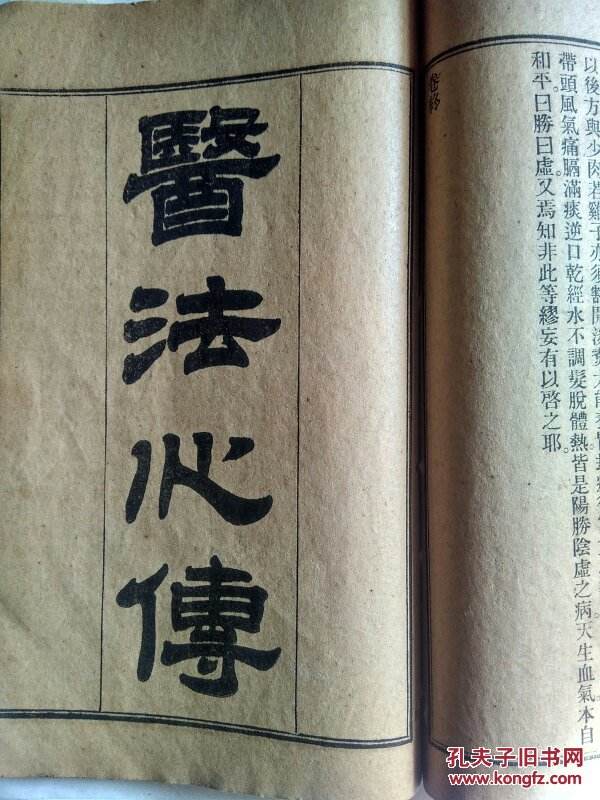 以後方與少肉若雞子亦須
帶頭風氣痛膈滿痰逆口乾經水不調髮脫體熱皆是陽勝陰虛之病天生血氣本自
和平曰勝曰虛又焉知非此等繆妄有以啓之耶
卷終
醫法心傳
孔夫子旧书网
www.kongfz.com